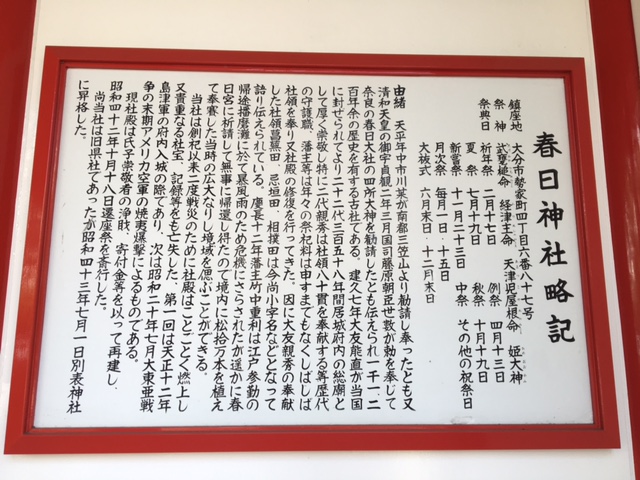 春日神社略記
鎮座地　大分市勢家町四丁目六番八十七号
祭神　武甕槌命　経津主命　天津児屋根命　姫大神
祭典日　祈年祭　二月十七日　例祭　四月十三日
夏祭　七月十九日　秋祭　十月十九日
新嘗祭　十一月二十三日　中祭　その他の祝祭日
月次祭　毎月一日、十五日
大祓式　六月末日、十二月末日
由緒　天平年中市川某が南都三笠山より勧請し奉ったとも又
清和天皇の御宇貞観二年三月国司藤原朝臣世数が勅を奉じて
奈良の春日大社の四所大神を勧請したとも伝えられ一千一、二
百年余の歴史を有する古社である。建久七年大友能直が当国
に封ぜられてより二十二代三百五十八年間居城府内の総廟と
して厚く崇敬し特に二代親秀は社領八十貫を奉献する等歴代
の守護職、藩主等は年々の祭祀料は申すまでもなくしばしば
社領を奉り又社殿の修復を行ってきた。因に大友親秀の奉献
した社領菖蒲田、忌垣田、相撲田は今尚小字名などとなって
語り伝えられている。慶長十二年藩主竹中重利は江戸参勤の
帰途播磨灘に於て暴風雨のため危機にさらされたが遥かに春
日宮に祈請して無事に帰還し得たので境内に松拾万本を植え
て奉賽した当時の広大なりし境域を偲ぶことができる。
当社は創祀以来二度戦災のために社殿はことごとく燃上し
又貴重なる社宝、記録等をも亡失した。第一回は天正十二年
島津軍の府内入城の際であり、次は昭和二十年七月大東亜戦
争の末期アメリカ空軍の焼夷爆撃によるものである。
現社殿は氏子崇敬者の浄財、寄付金等を以って再建し、
昭和四十二年十月十八日遷座祭を斎行した。
尚当社は旧県社であったが昭和四十三年七月一日別表神社
に昇格した。